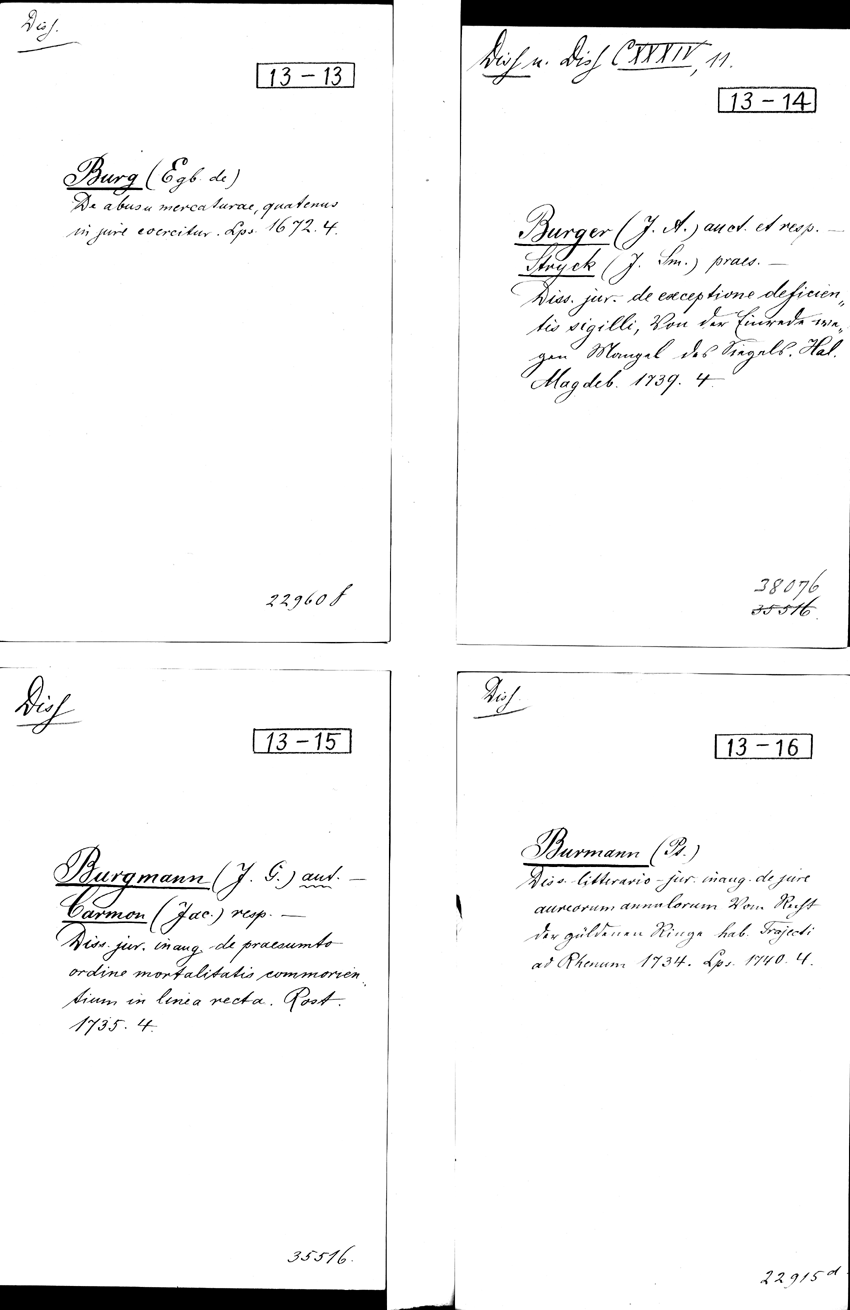 Diss.
13-13
Burg (Egb. de)
De abusu mercaturae, quatenus
in jure exercitur. Lps. 1672. 4.
22960 f
Diss u. Diss CXXXIV, 11.
13-14
Burger (J. A.) auct. et resp. —
Stryck (J. Sm.) praes. —
Diss. jur. de exceptione deficien„
tis sigilli, Von der Einrede we„
gen Mangel des Siegels. Hal.
Magdeb. 1739. 4.
38076
35516.
Diss
13-15
Burgmann (J. G.) aut. —
Carmon (Jac.) resp. —
Diss. jur. inaug. de praesumto
ordine mortalitatis commorien„
tium in linea recta. Rost.
1735. 4.
35516.
Diss.
13-16
Burmann (Ps.)
Diss. litterario-jur. inaug. de jure
aureorum annulorum Vom Recht
der güldenen Ringe hab. Trajecti
ad Rhenum 1734. Lps. 1740. 4.
22915 d